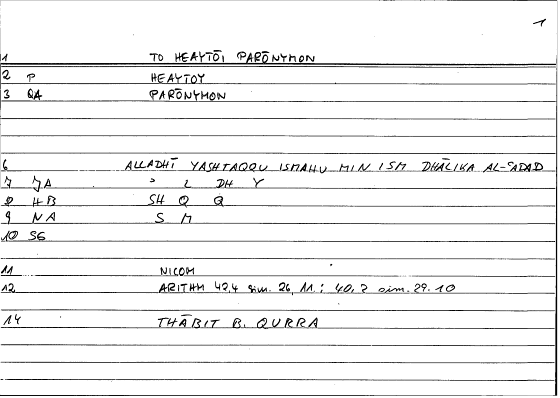 1
1 TO HEAYTŌI PARŌNYMON
2 P HEAYTOY
3 QA PARŌNYMON
6 ALLADHĪ YASHTAQQU ISMAHU MIN ISM DHĀLIKA AL-ʿADAD
7 JA ʾ L DH Y
8 HB SH Q Q
9 NA S M
10 SG
11 NICOM
12 ARITHM 42,4 sim. 26, 11.; 40,2 sim. 29.10
14 THĀBIT B. QURRA